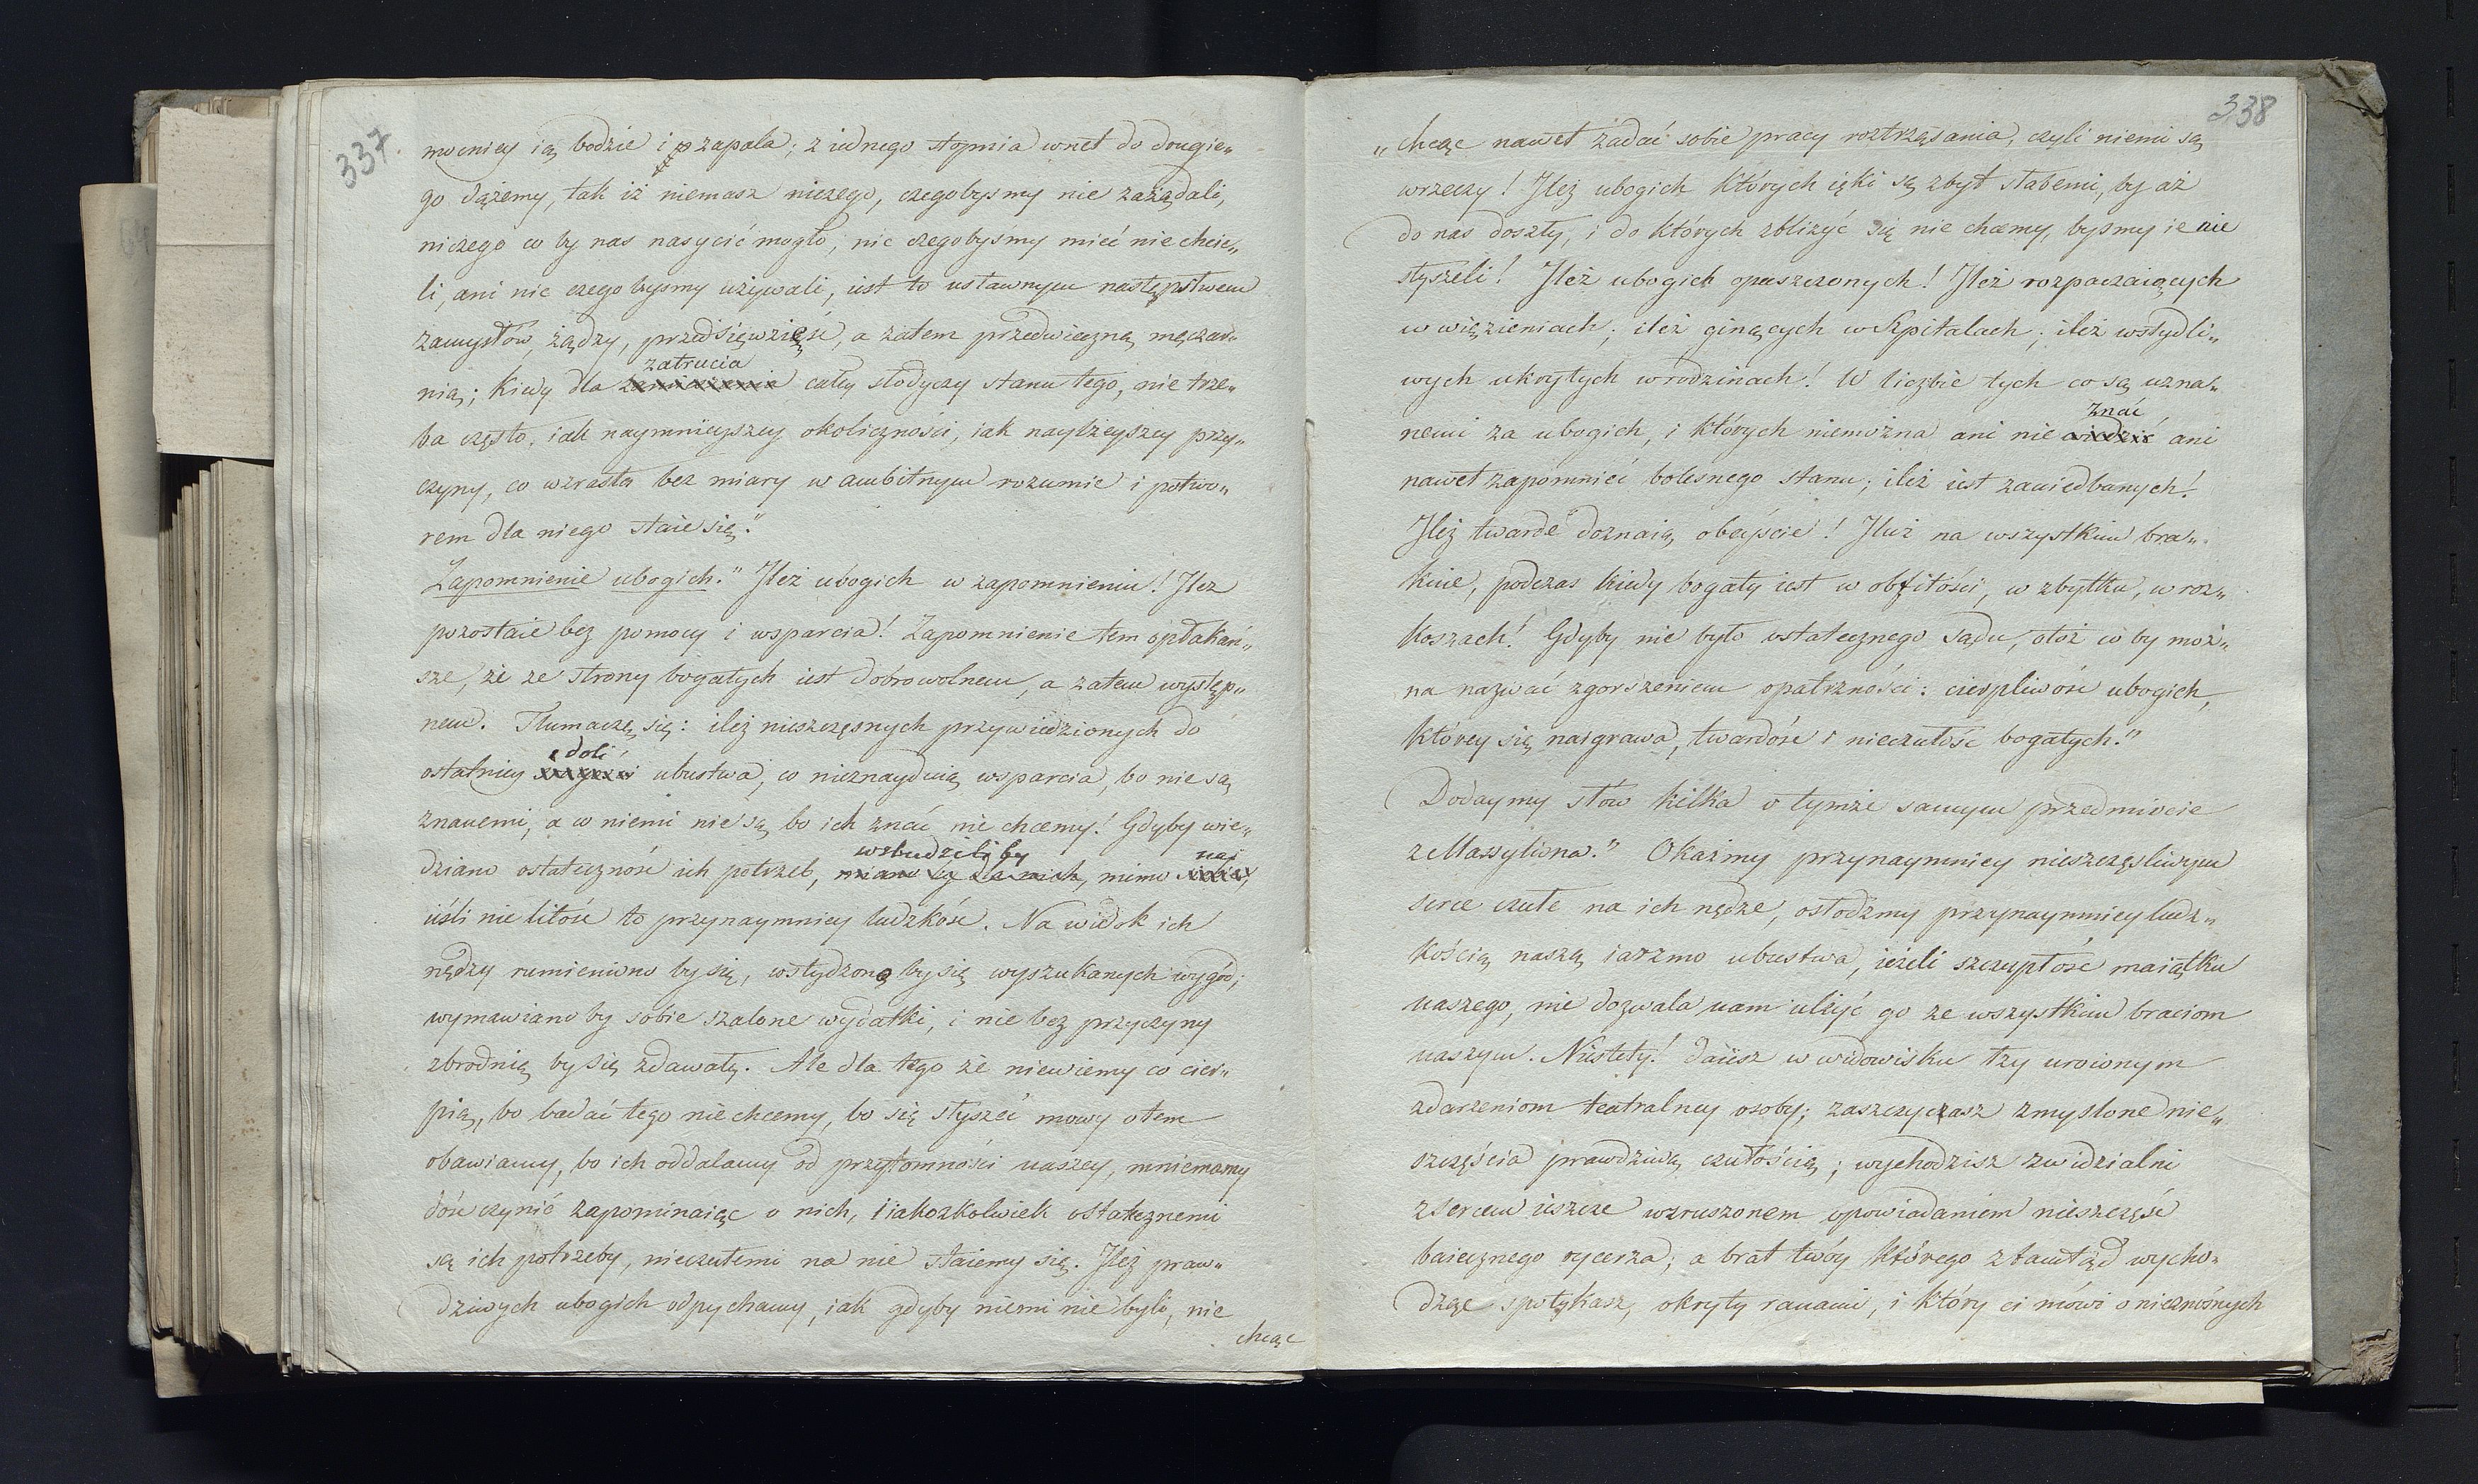 337.
mocniey ią bodzie i zapala; z iednego stopnia wnet do drugie„
go dążemy, tak iż niemasz niczego, czegobysmy nie zażądali,
niczego co by nas nasycić mogło; nic czegobyśmy mieć nie chcie„
li, ani nic czegobysmy używali, iest to ustawnym następstwem
zamysłów, żądzy, przedsięwzięść, a zatem przedwieczną męczar„
zatrucia
nią; kiedy dla całey słodyczy stanu tego, nie trze„
ba często, iak naymnieyszey okoliczności, iak naylżeyszey przy„
czyny, co wzrasta bez miary w ambitnym rozumie i potwo„
rem dla niego staie się."
Zapomnienie ubogich." Ileż ubogich w zapomnieniu! Ileż
pozostaie bez pomocy i wsparcia! Zapomnienie tem opłakań„
sze, że ze strony bogatych iest dobrowolnem, a zatem występ„
nem. Tłumaczę się: ileż nieszczęsnych przywiedzionych do
doli
ostatniey ubustwa, co nieznayduią wsparcia, bo nie są
znanemi, a w niemi nie są, bo ich znać nie chcemy! Gdyby wie„
wzbudzeliby naj
dziano ostateczność ich potrzeb, miano by dla nich, mimo
ieśli nie litość to przynaymniey ludzkość. Na widok ich
nędzy rumieniono by się, wstydzono by się wyszukanych wygód;
wymawiano by sobie szalone wydatki, i nie bez przyczyny
zbrodnią by się zdawały. Ale dla tego że niewiemy co cier„
pią, bo badać tego nie chcemy, bo się słyszeć mowy o tem
obawiamy, bo ich oddalamy od przytomności naszey, mniemamy
dość czynić zapominaiąc o nich, i iakożkolwiek ostatecznemi
są ich potrzeby, nieczułemi na nie staiemy się. Ileż praw„
dziwych ubogich odpychamy, iak gdyby niemi nie byli, nie
chcąc
338
„chcąc nawet zadać sobie pracy roztrząsania, czyli niemi są
wrzeczy! Ileż ubogich których ięki są zbyt słabemi, by aż
do nas doszły, i do których zbliżyć się nie chcemy, bysmy ie nie
słyszeli! Ileż ubogich opuszczonych! Ileż rozpaczaiących
w więzieniach; ileż ginących w Szpitalach; ileż wstydli„
wych ukrytych w rodzinach! W liczbie tych co są uzna„
znać
nemi za ubogich, i których niemożna ani nie widzić ani
nawet zapomnieć bolesnego stanu; ileż iest zaniedbanych!
Ileż twarde doznaią obeyście! Iluż na wszystkim bra„
knie, podczas kiedy bogaty iest w obfitości, w zbytku, w roz„
koszach! Gdyby nie było ostatecznego sądu, otoż co by moż„
na nazwać zgorszeniem opatrzności: cierpliwość ubogich,
którey się naigrawa, twardość i nieczułość bogatych."
Dodaymy słów kilka o tymże samym przedmiocie
z Massyliona." Okażmy przynaymniey nieszczęsliwym
serce czułe na ich nędze, osłodźmy przynaymniey ludz„
kością naszą iarzmo ubustwa, ieżeli szczupłość maiątku
naszego, nie dozwala nam ulżyć go ze wszystkim braciom
naszym. Niestety! daiesz w widowisku łzy uroionym
zdarzeniom teatralney osoby; zaszczyczasz zmyslone nie„
szczęścia prawdziwą czułością; wychodzisz z widzialni
z sercem ieszcze wzruszonem opowiadaniem nieszczęść
baiecznego rycerza; a brat twóy którego ztamtąd wycho„
dząc spotykasz, okryty ranami, i który ci mówi o nieznośnych